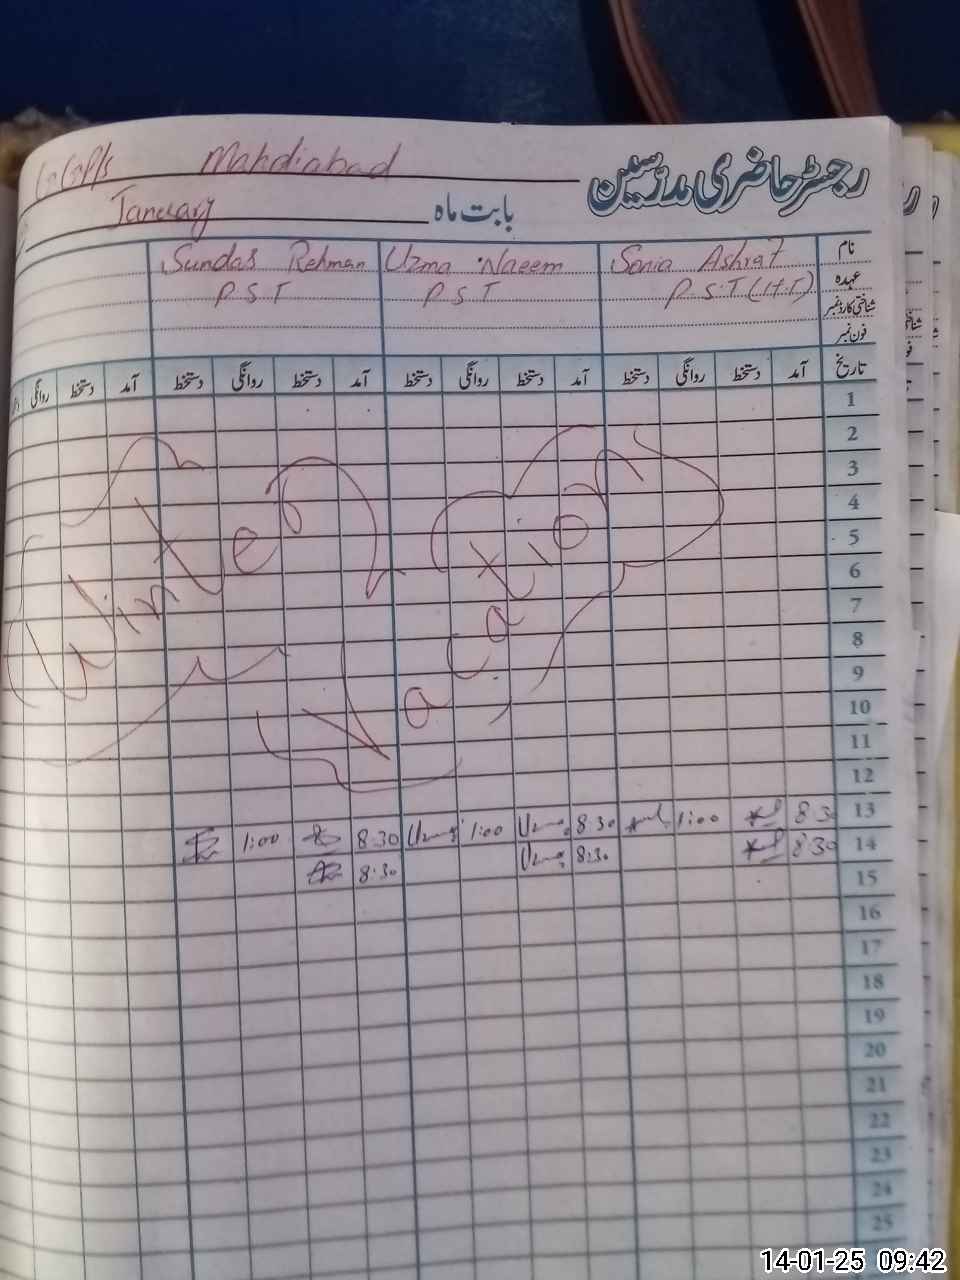 رجسٹر حاضری مدرسین
GGP/S Mahdiabad
بابت ماہ January
نام Sonia Ashraf Uzma Naeem Sundas Rehman
عہدہ P.S.T (H.T) P S T P S T
شناختی کارڈ نمبر
فون نمبر
تاریخ آمد دستخط روانگی دستخط آمد دستخط روانگی دستخط آمد دستخط روانگی دستخط آمد دستخط روانگی
1
2
3
4
5
6
7
8
9
10
11
12
Winter Vacation
13 8:30 1:00 8:30 1:00 8:30 1:00
14 8:30 8:30 8:30
15
16
17
18
19
20
21
22
23
24
25
14-01-25 09:42